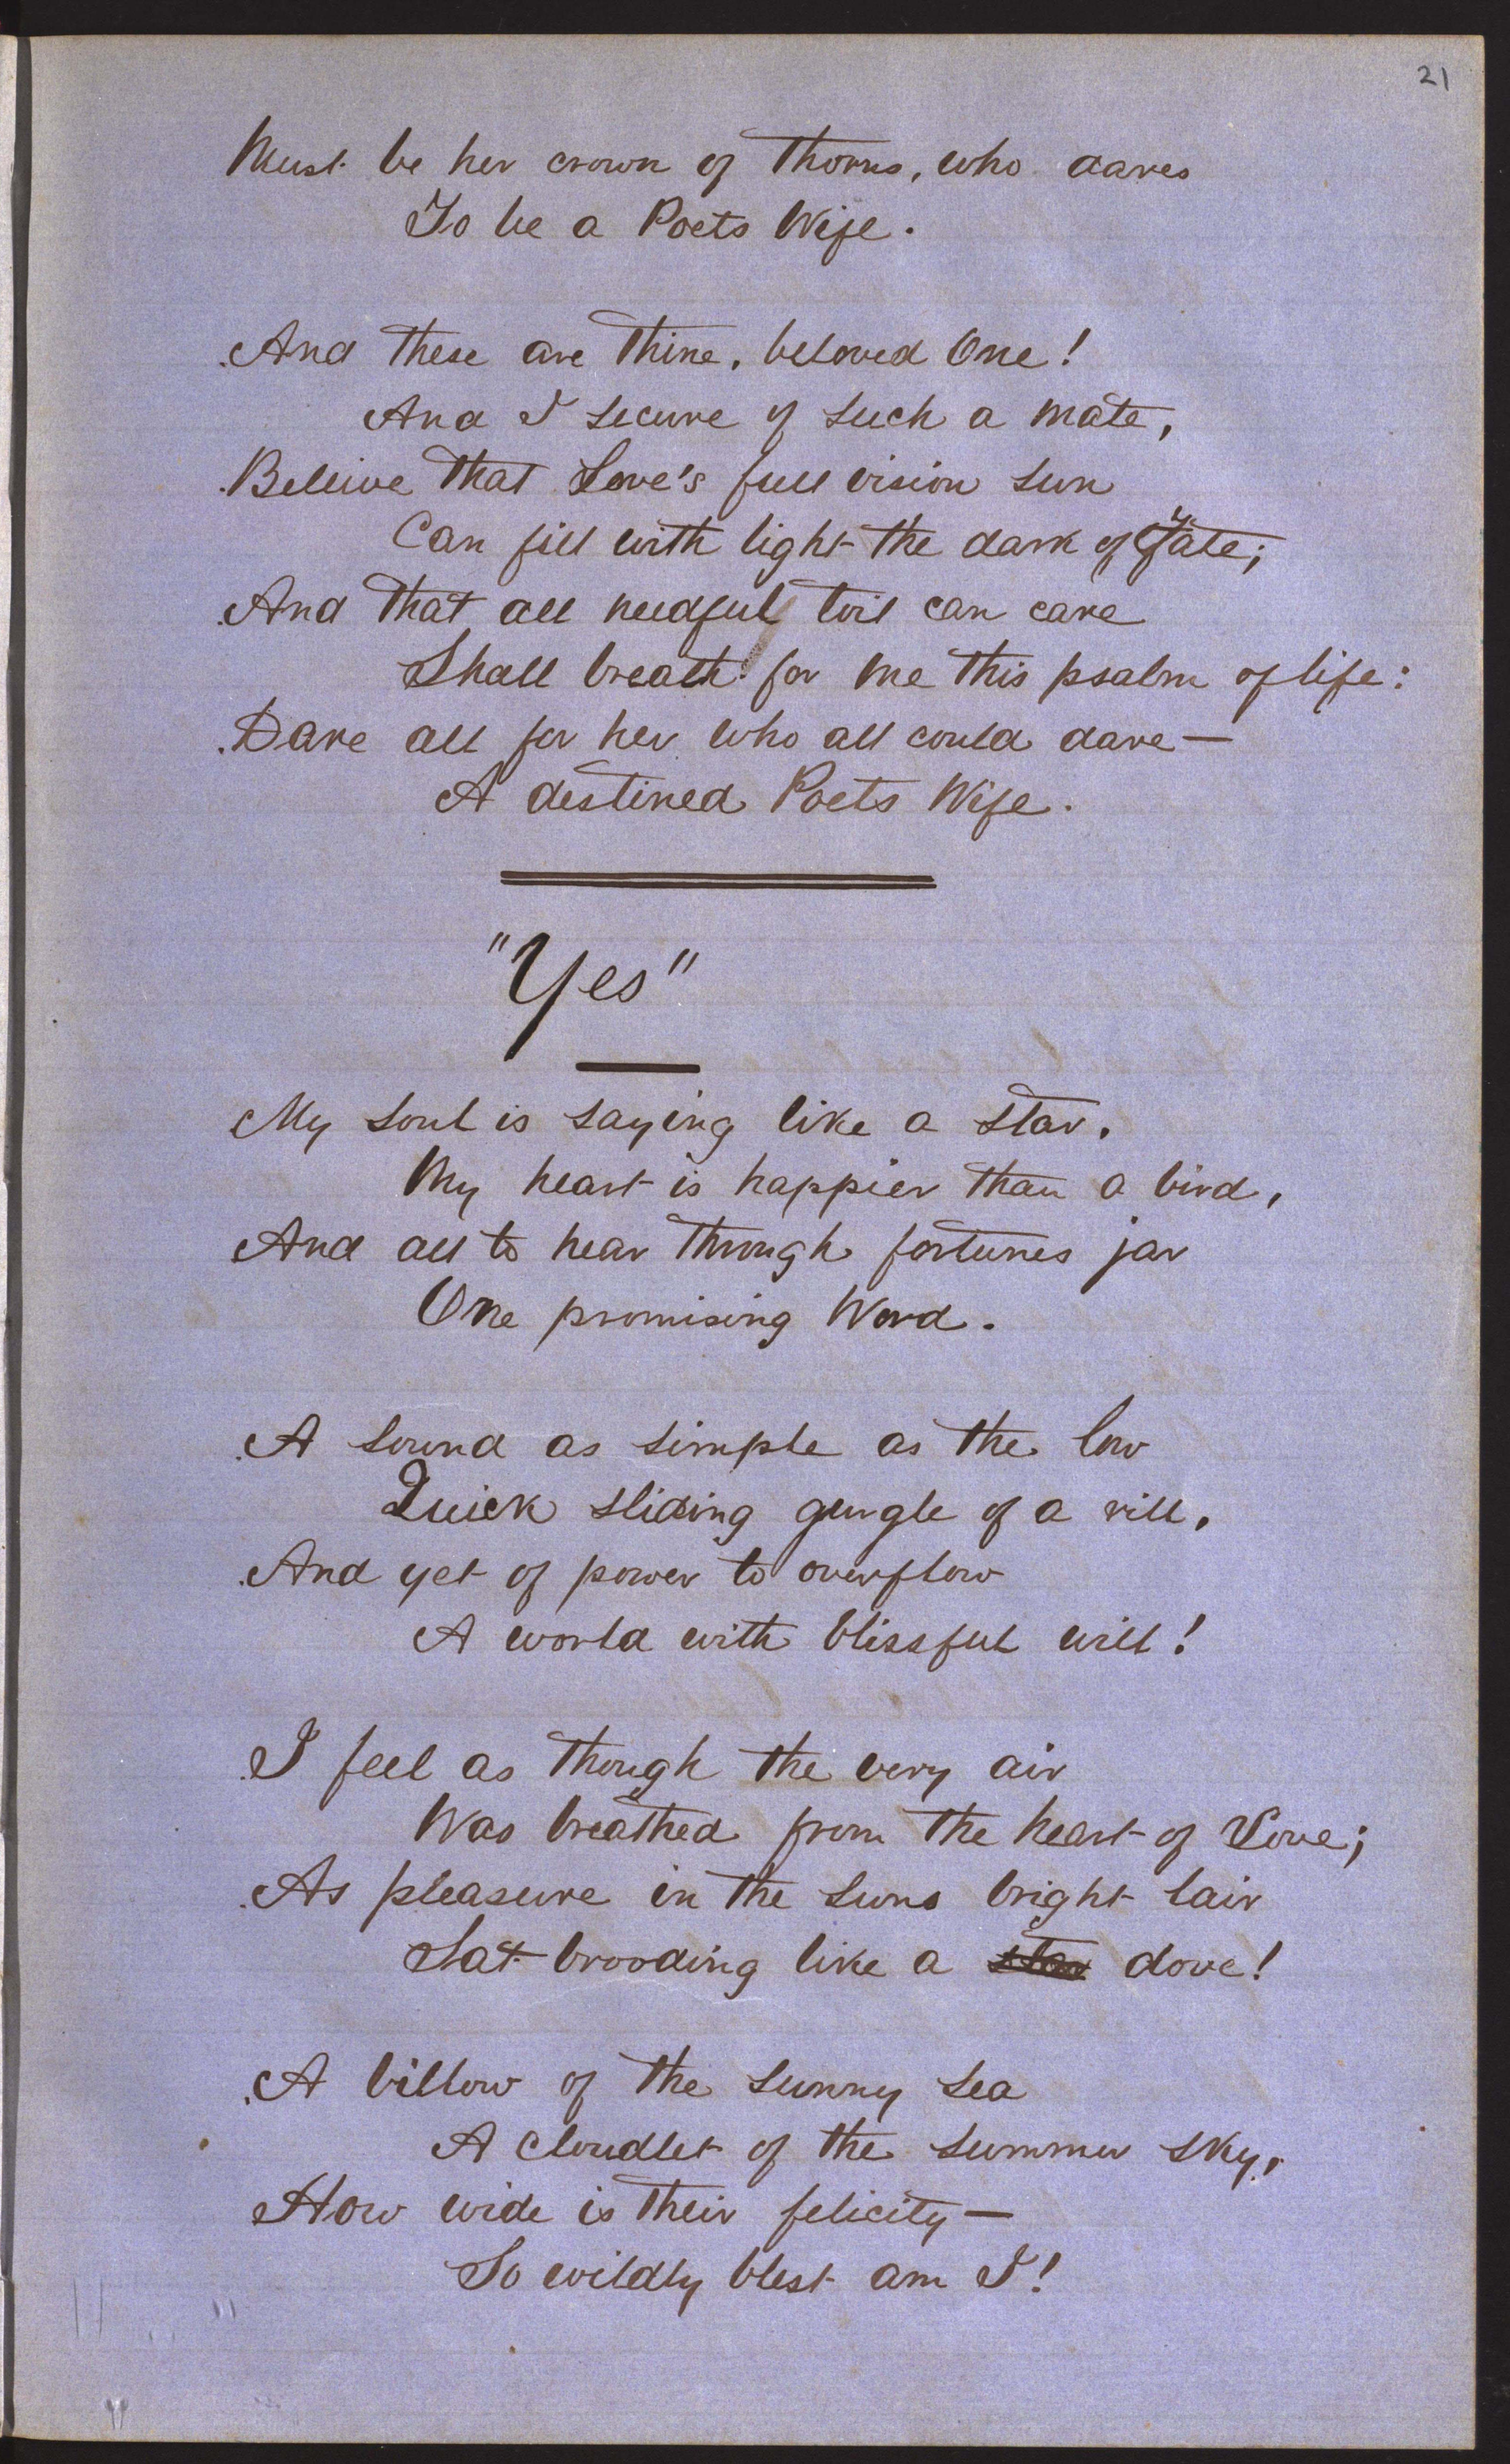 21
Must be her crown of thorns, who dares
To be a Poets Wife.
And these are thine, beloved One!
And I secure of such a mate,
Beleive that Love's full vision sun
Can fill with light the dark of Fate;
And that all needful toil can care
Shall breath for me this psalm of life:
Dare all for her who all could dare—
A destined Poets Wife.
"Yes"
My soul is saying like a star,
My heart is happier than a bird,
And all to hear through fortunes jar
One promising Word.
A sound as simple as the low
Quick sliding gurgle of a rill,
And yet of power to overflow
A world with blissful will!
I feel as though the very air
Was breathed from the heart of Love;
As pleasure in the suns bright lair
Sat brooding like a star dove!
A billow of the sunny sea
A cloudlet of the summer sky,
How wide is their felicity—
So wildly blest am I!